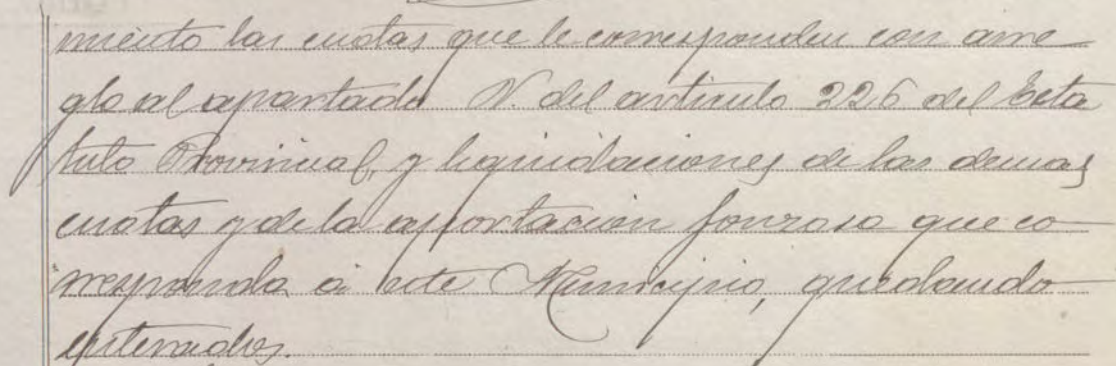 miento las cuotas que le corresponden con arre
glo al apartado N. del articulo 226 del Esta
tuto Provincial, y liquidaciones de las demas
cuotas y de la aportación forzosa que co
rresponda á este Municipio, quedando
enterados.